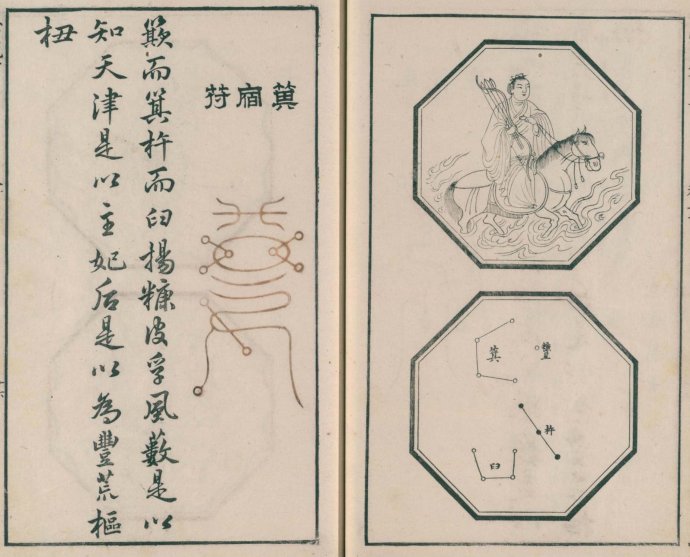 箕
杵
臼
箕宿符
簸而箕杵而臼揚糠皮孚風藪是以
知天津是以主妃后是以為豐荒樞
杻